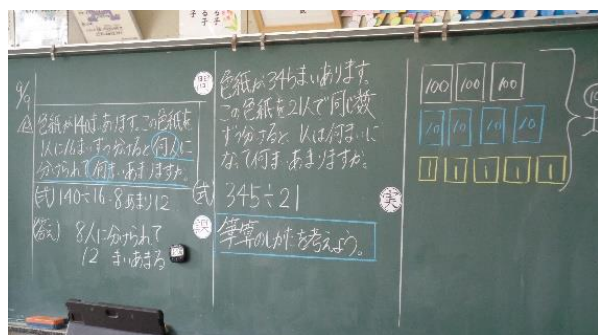 9/9
色紙が140まいあります。この色紙を
1人に16まいずつ分けると何人に
分けられて何まいあまりますか。
(式) 140÷16=8あまり12
(答え) 8人に分けられて
12 まいあまる
色紙が345まいあります。
この色紙を21人で同じ数
ずつ分けると、1人は何まいに
なって何まいあまりますか。
(式) 345÷21
課
筆算のしかたを考えよう。
実
100 100 100
10 10 10 10
1 1 1 1 1